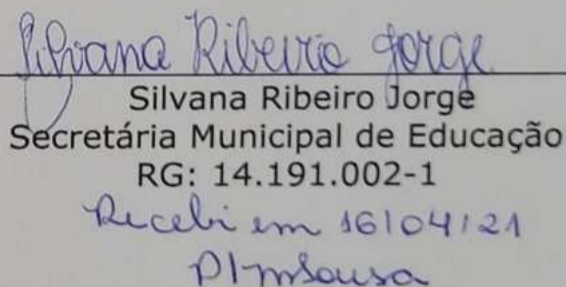 Silvana Ribeiro Jorge
Silvana Ribeiro Jorge
Secretária Municipal de Educação
RG: 14.191.002-1
Recebi em 16/04/21